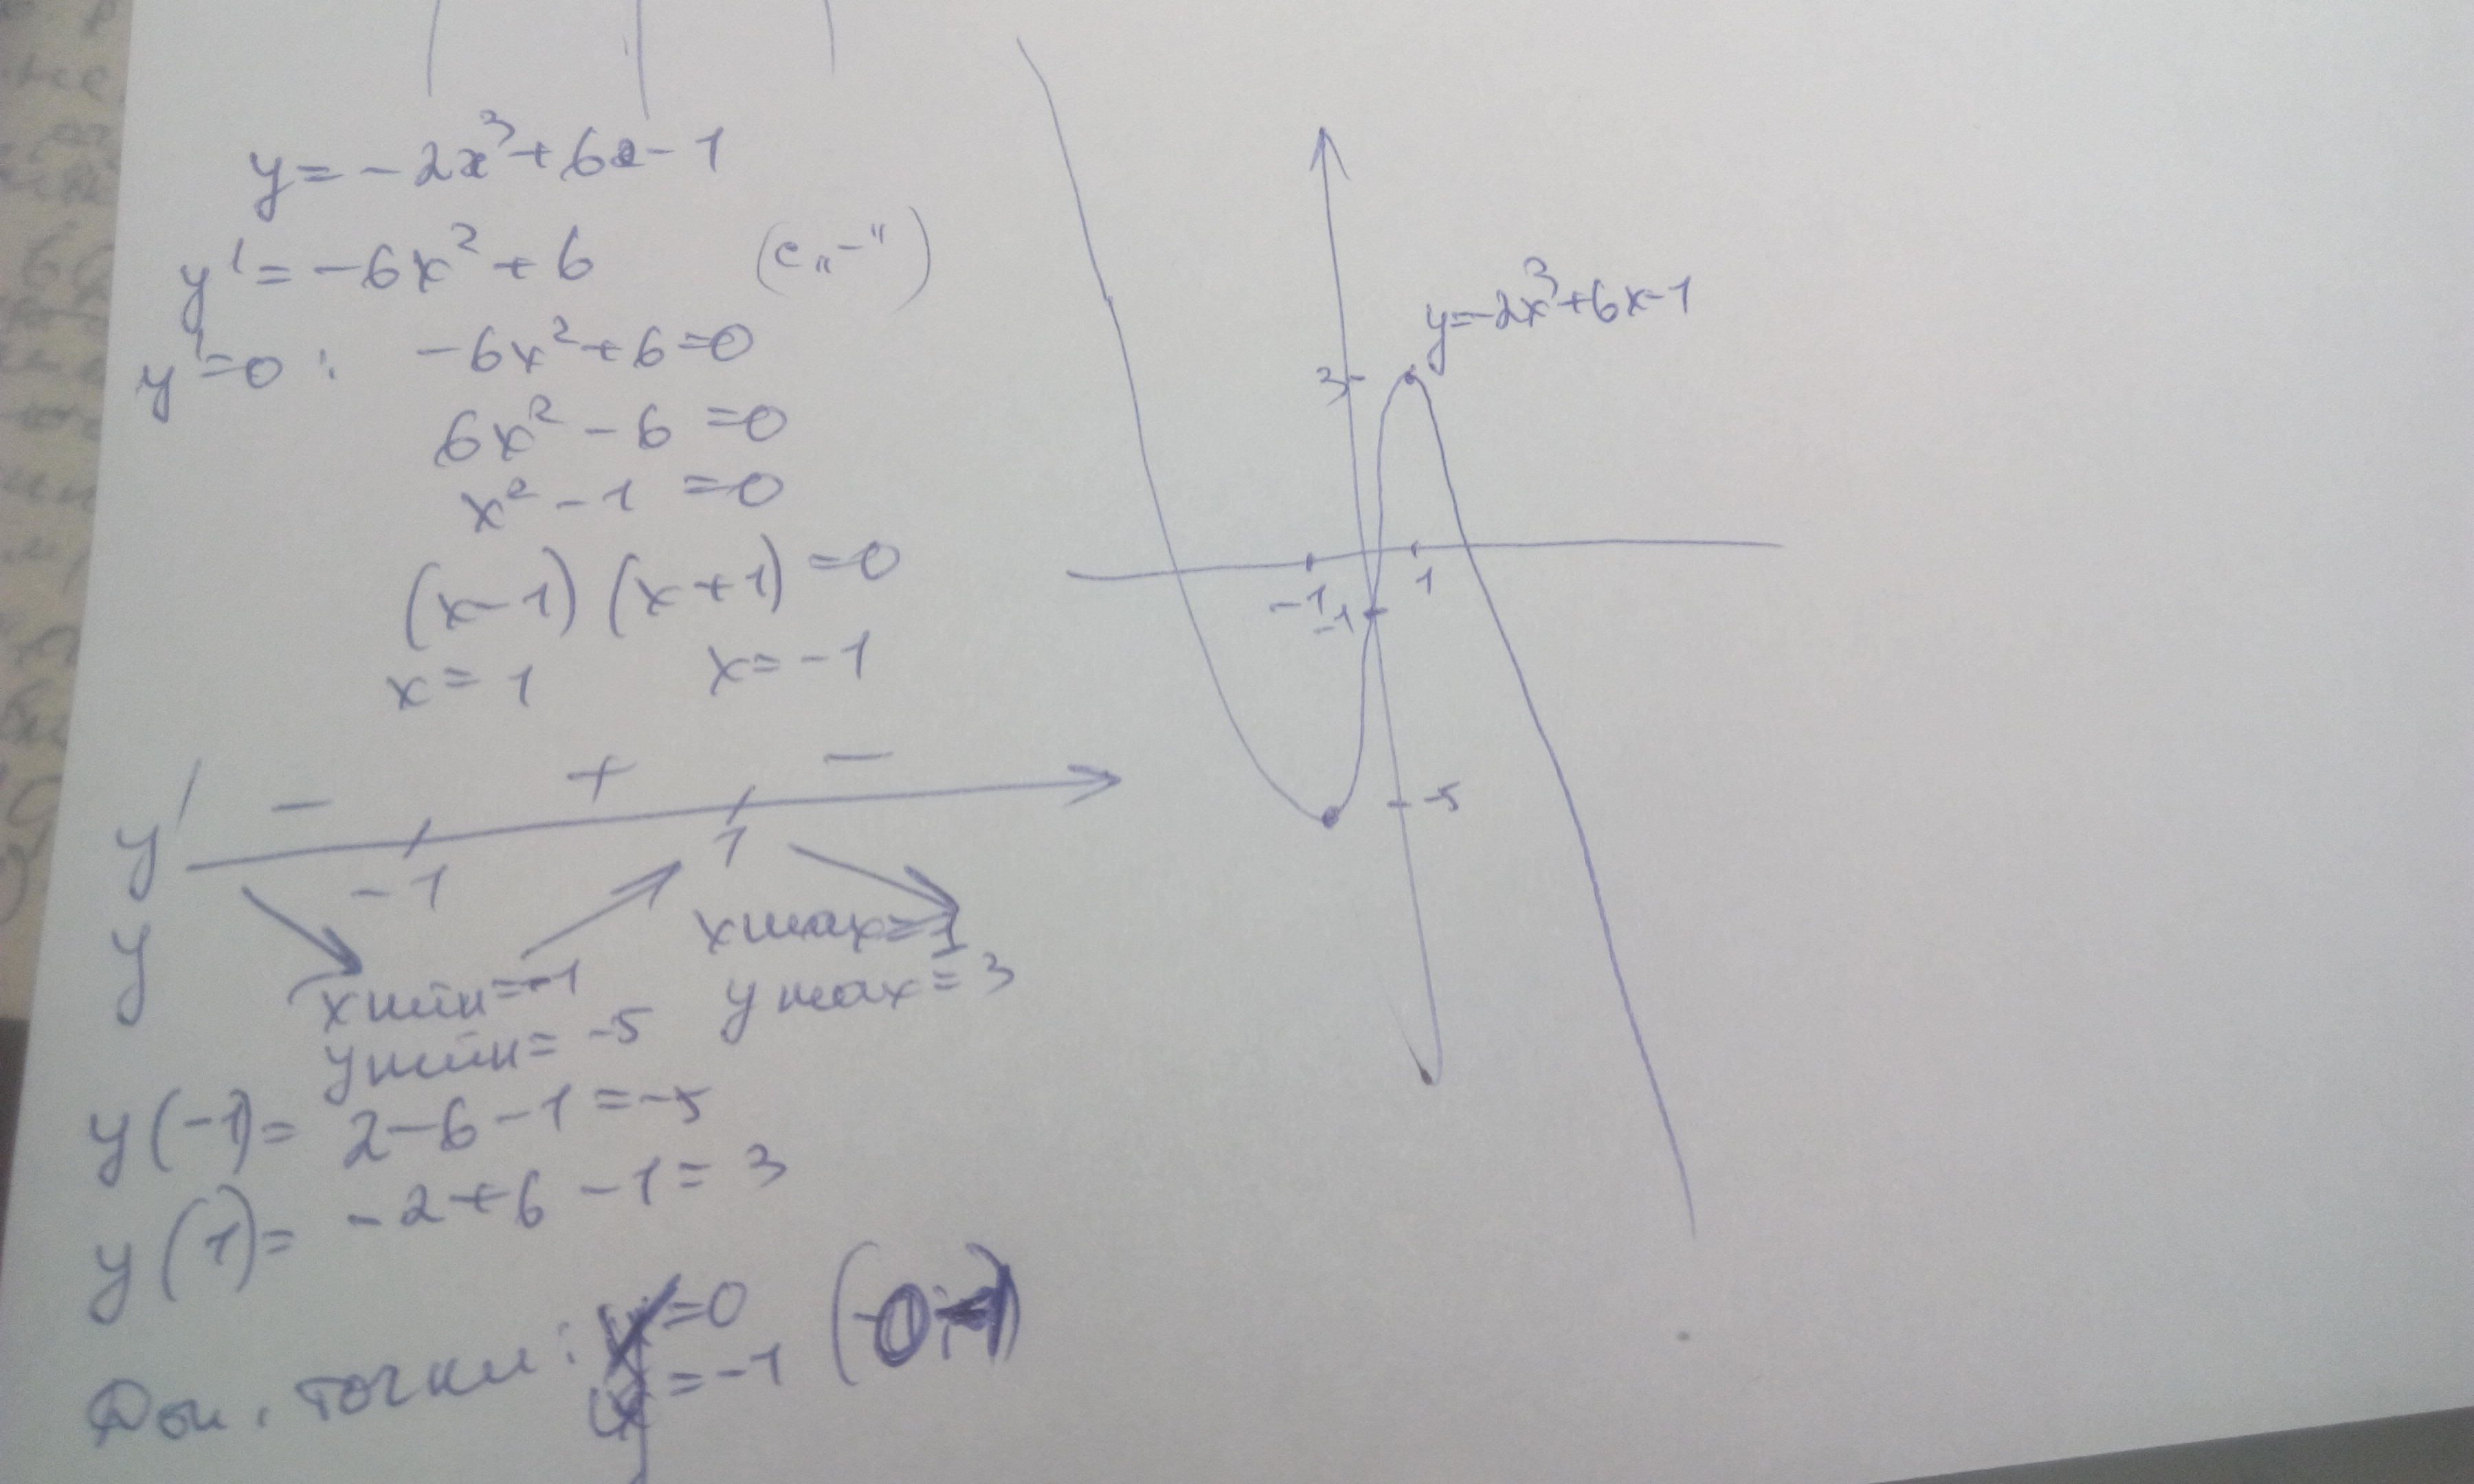 y = -2x³ + 6x - 1
y' = -6x² + 6 (с „-")
y' = 0 : -6x² + 6 = 0
6x² - 6 = 0
x² - 1 = 0
(x - 1) (x + 1) = 0
x = 1 x = -1
y' - + -
-1 1
y
xmin = -1 xmax = 1
ymin = -5 ymax = 3
y(-1) = 2 - 6 - 1 = -5
y(1) = -2 + 6 - 1 = 3
Доп. точки: x = 0
y = -1 (0; -1)
y = -2x³ + 6x - 1
3
-1 1
-1
-5